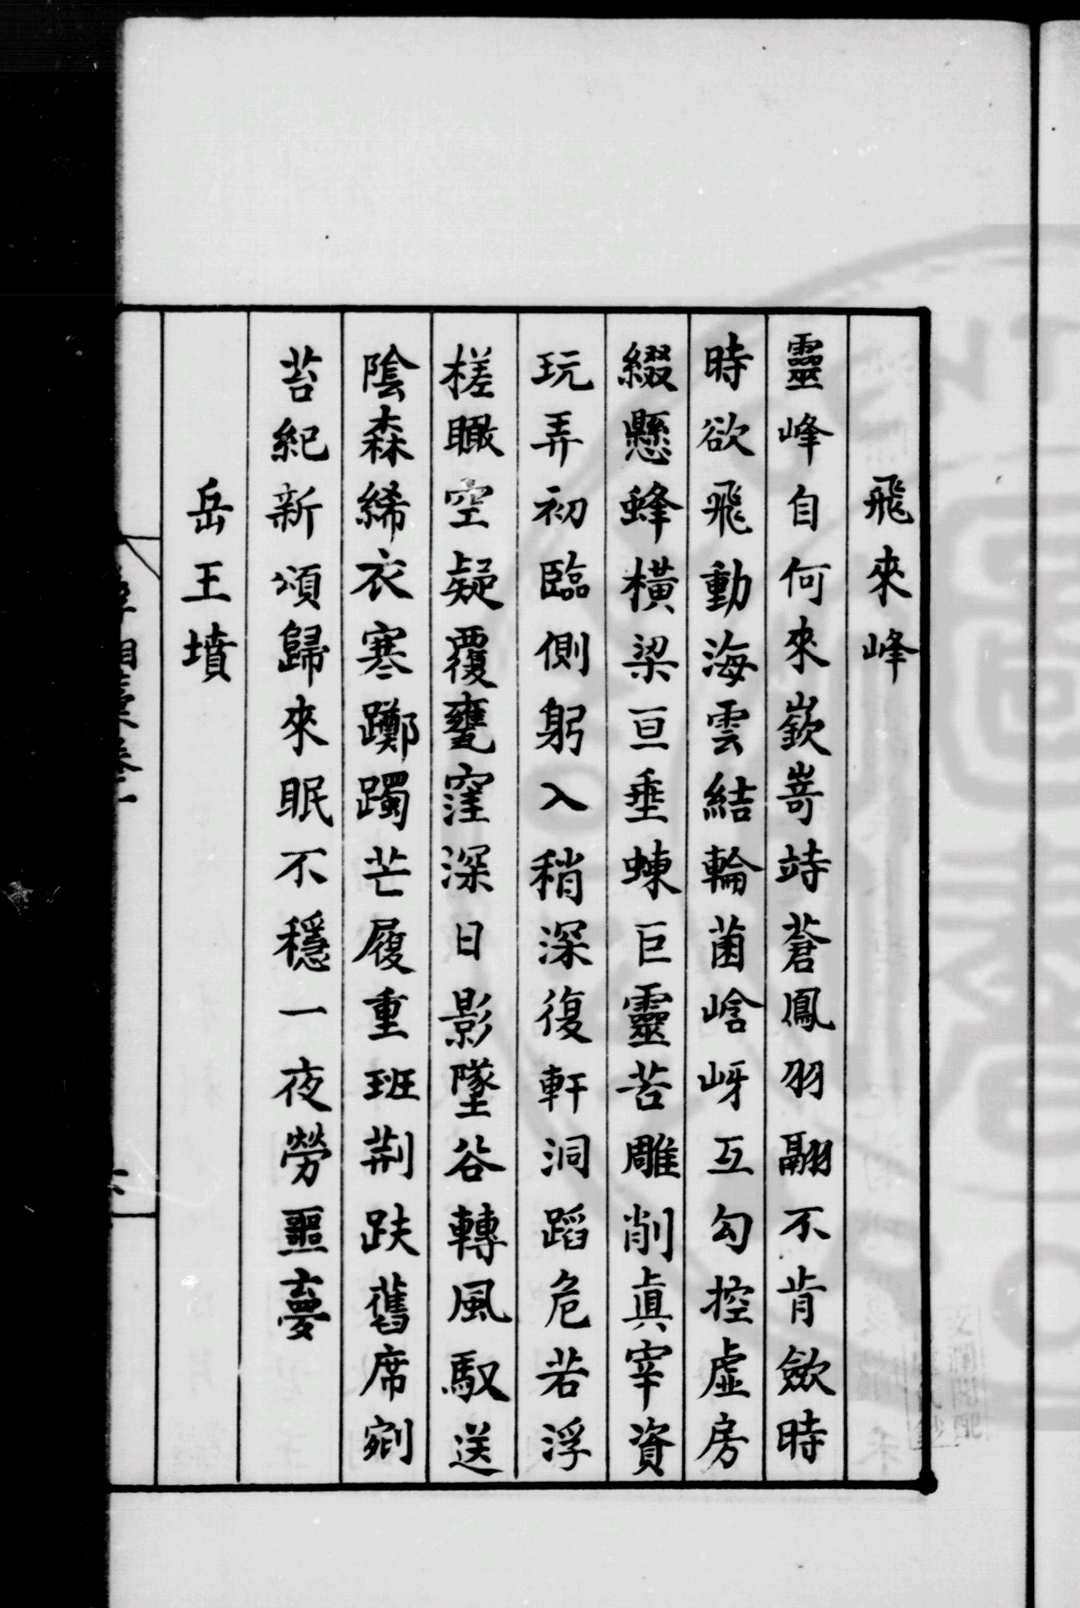 飛來峰
靈峰自何來嶔嵜峙蒼鳳羽翮不肯斂時
時欲飛動海雲結輪菌峆岈互勾控虛房
綴懸蜂橫梁亘垂蝀巨靈苦雕削眞宰資
玩弄初臨側躬入稍深復軒洞蹈危若浮
槎瞰空疑覆甕窪深日影墜谷轉風馭送
陰森絺衣寒躑躅芒屨重班荆趺舊席剜
苔紀新頌歸來眠不穩一夜勞噩夢
岳王墳